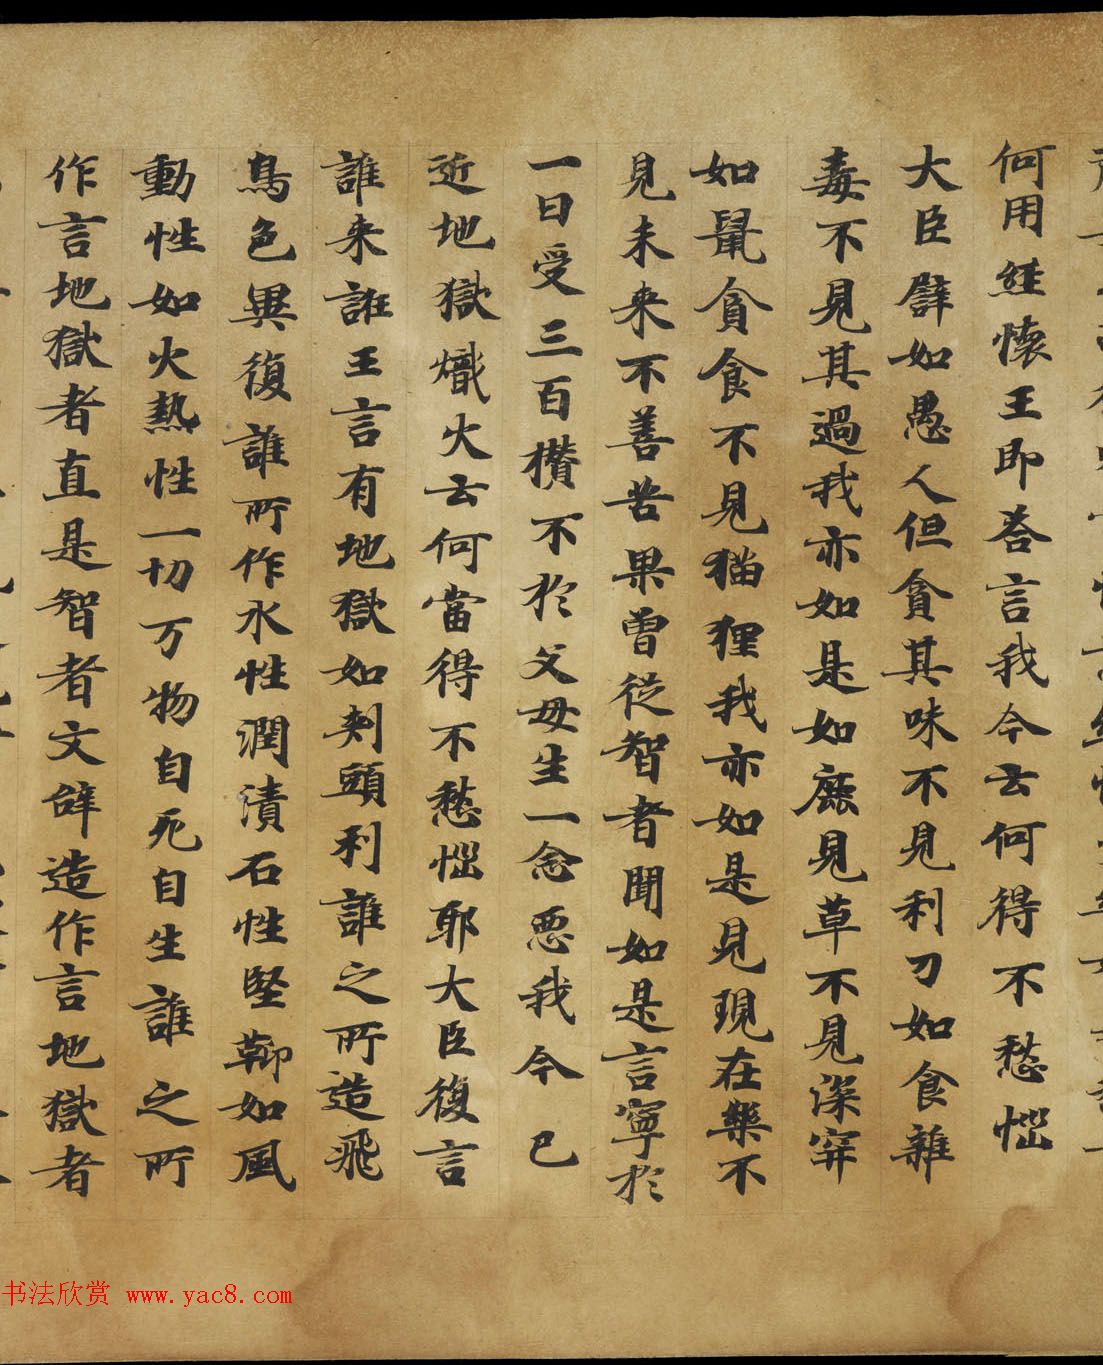 何用経懐王即荅言我今云何得不愁惱
大臣譬如愚人但貪其味不見利刀如食雜
毒不見其過我亦如是如鹿見草不見深穽
如鼠貪食不見猫狸我亦如是見現在樂不
見未来不善苦果曽従智者聞如是言寧於
一日受三百欑不於父母生一念悪我今已
近地獄熾火云何當得不愁惱耶大臣復言
誰来誑王言有地獄如刾頭利誰之所造飛
鳥色異復誰所作水性潤漬石性堅鞕如風
動性如火熱性一切万物自死自生誰之所
作言地獄者直是智者文辝造作言地獄者
书法欣赏 www.yac8.com